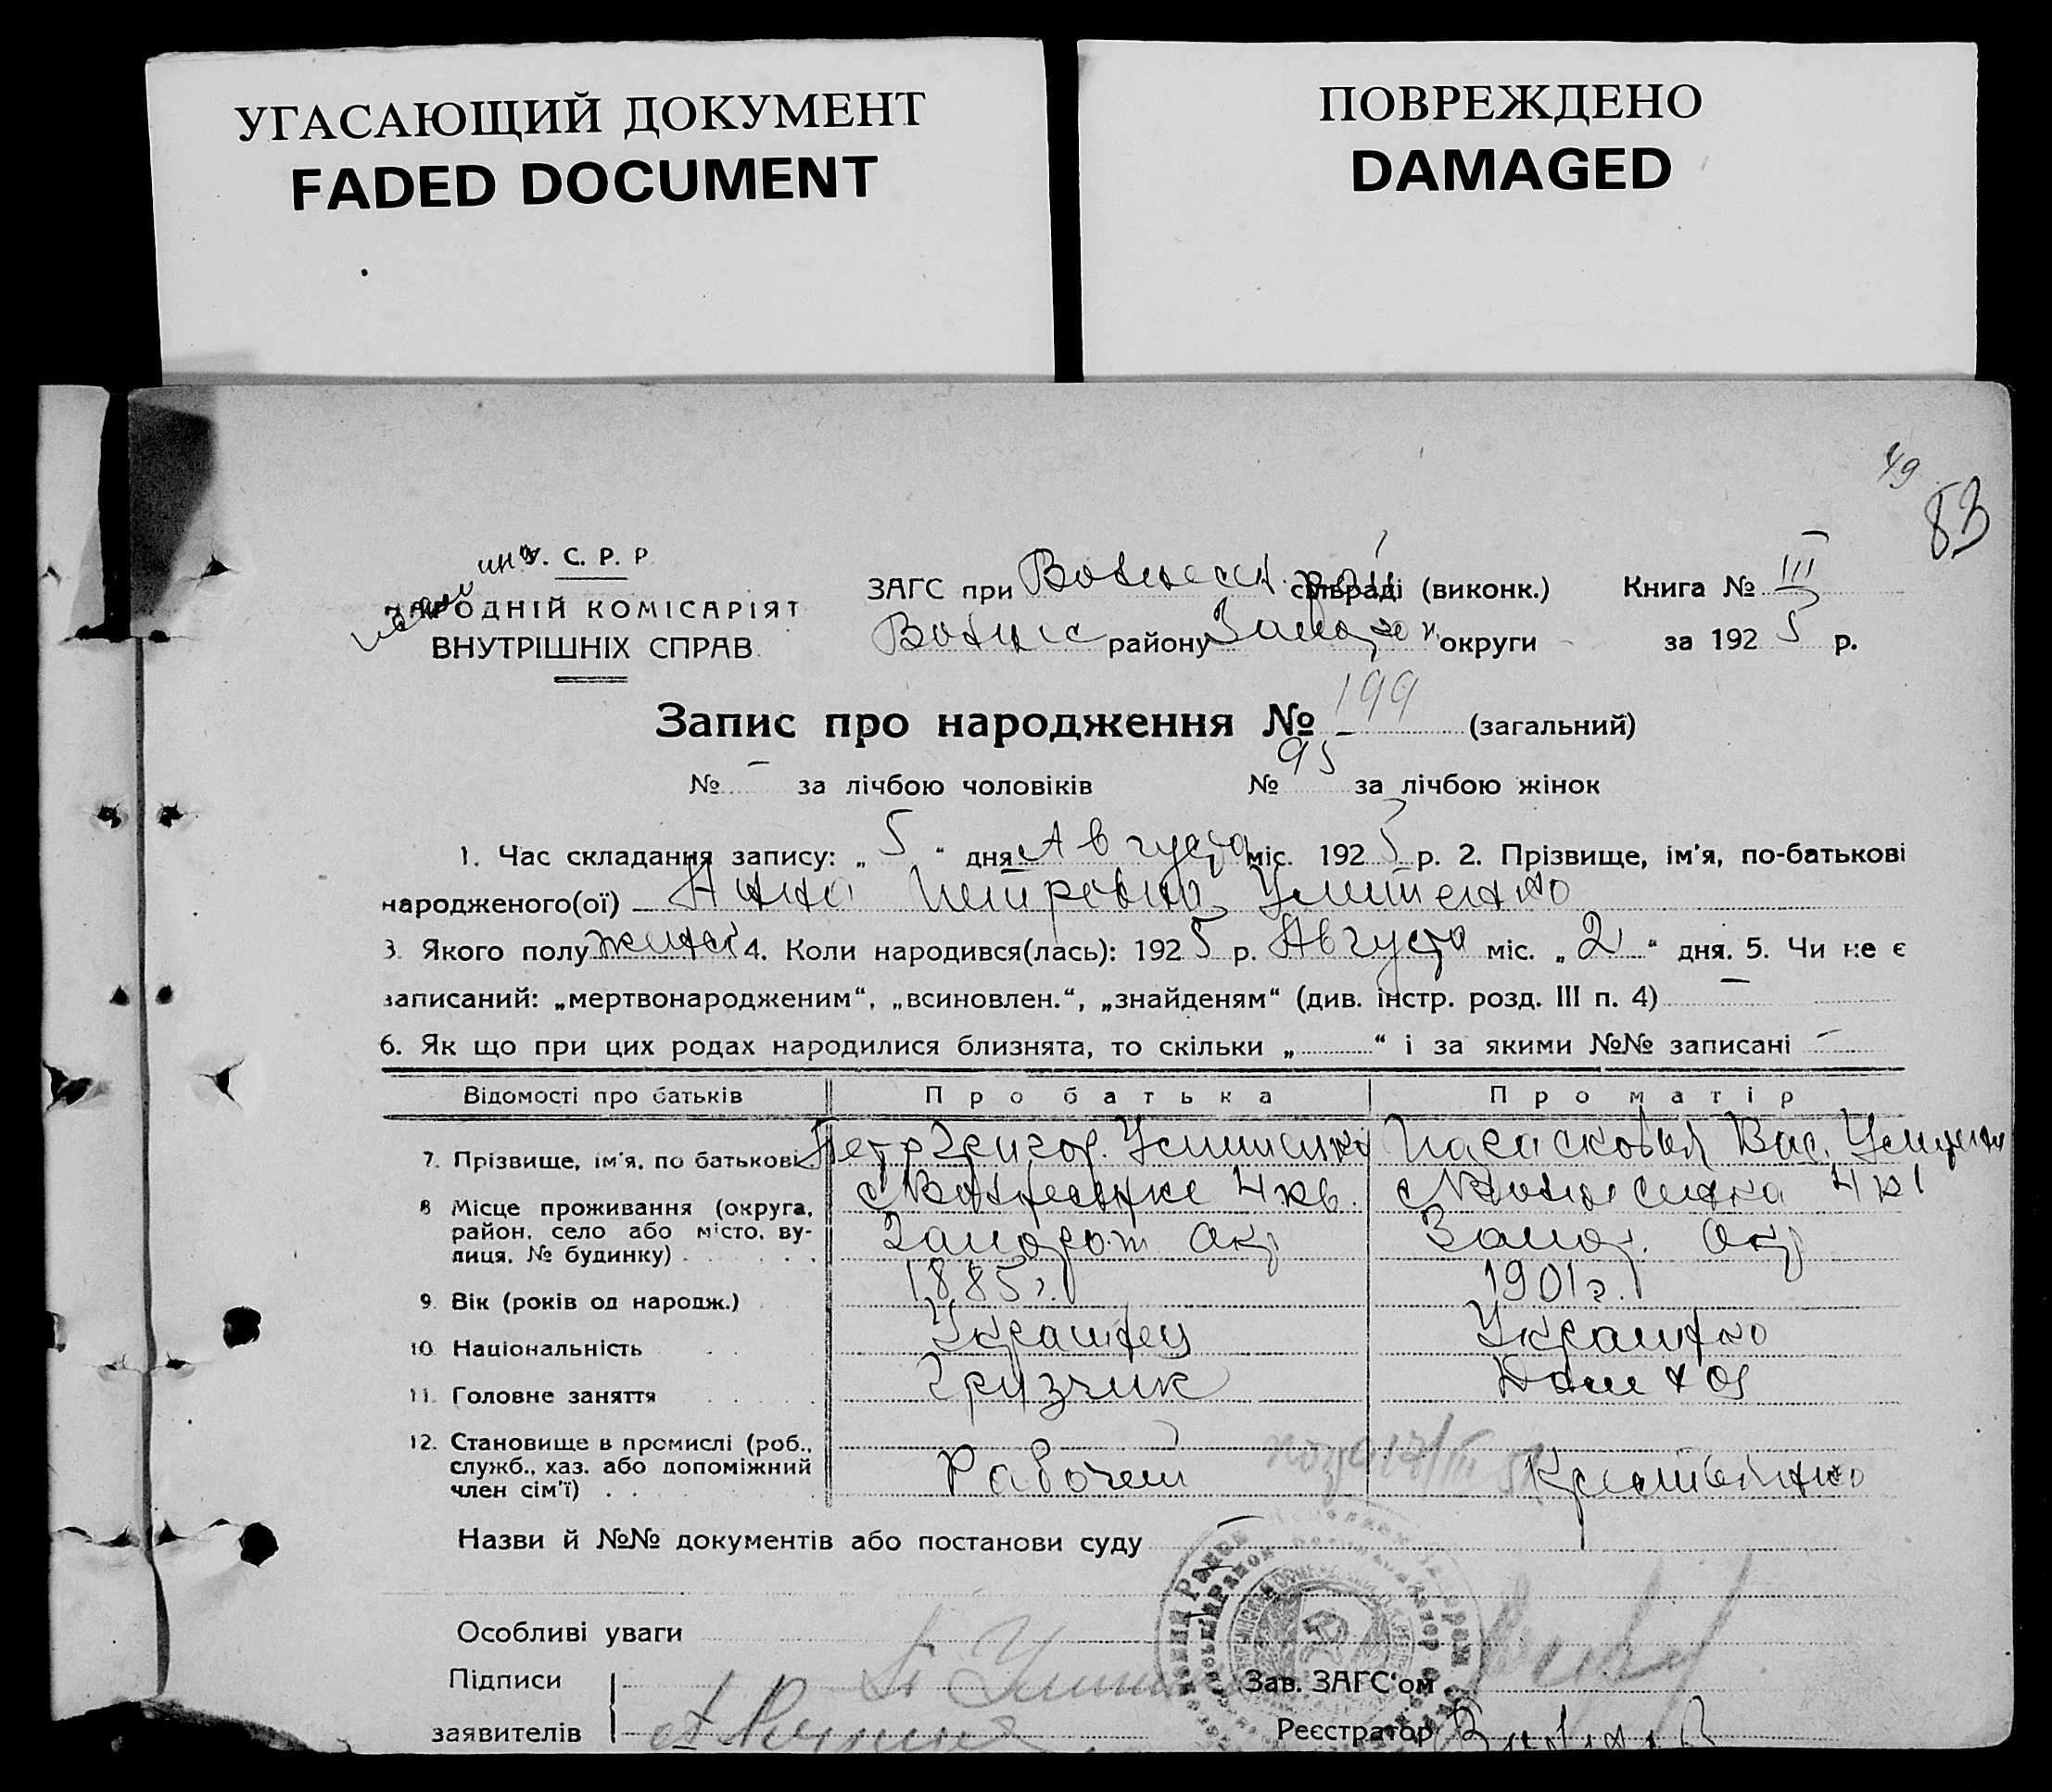 УГАСАЮЩИЙ ДОКУМЕНТ
FADED DOCUMENT
ПОВРЕЖДЕНО
DAMAGED
49
83
У. С. Р. Р.
РОДНІЙ КОМІСАРІЯТ
ВНУТРІШНІХ СПРАВ
ЗАГС при Вознесенк. рай сільраді (виконк.) Книга № III
Вознес району Запорож округи за 1925 р.
Запис про народження № 199 (загальний)
№ – за лічбою чоловіків № 95 за лічбою жінок
1. Час складання запису: „ 5 “ дня Августа міс. 1925 р. 2. Прізвище, ім'я, по-батькові
народженого(ої) Нина Петровна
3 Якого полу женск 4. Коли народився(лась): 1925 р. Августа міс. „ 2 “ дня. 5. Чи не є
записаний: „мертвонародженим“, „всиновлен.“, „знайденям“ (див. інстр. розд. III п. 4) –
6. Як що при цих родах народилися близнята, то скільки „ “ і за якими №№ записані –
Відомості про батьків Про батька Про матір
7. Прізвище, ім'я, по батькові Петр Григор. Парасковья Вас.
8 Місце проживання (округа, район, село або місто, вулиця, № будинку) с Вознесенке 4 кв. Запорож Окр с Вознесенка 4 к Запор. Окр
9. Вік (років од народж.) 1885 г. 1901 г.
10 Національність Украинец Украинка
11. Головне заняття Грузчик Домхоз
12. Становище в промислі (роб., служб., хаз. або допоміжний член сім'ї) Рабочий Крестьянка
Назви й №№ документів або постанови суду –
Особливі уваги
Підписи
заявителів
Зав. ЗАГС'ом
Реєстратор